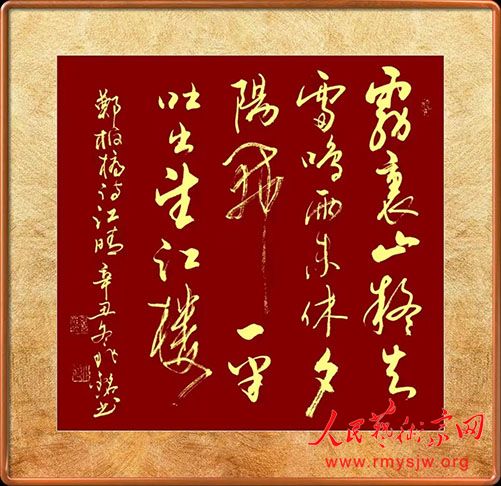 霧裹山疑失
雷鳴雨未休夕
陽開一半
吐出望江樓
鄭板橋詩江晴 辛丑冬 書
人民藝術家网
www.rmysjw.org